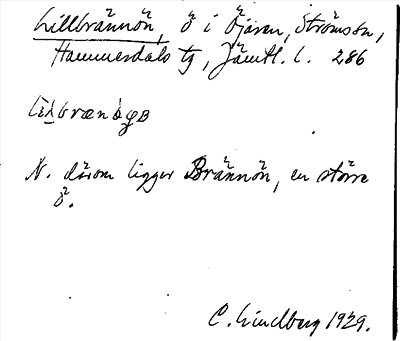 Lillbrännön, ö i Öjaren, Strömsön,
Hammerdals tg, Jämtl. l. 286
N. därom ligger Brännön, en större
ö.
C. Lindberg 1929.